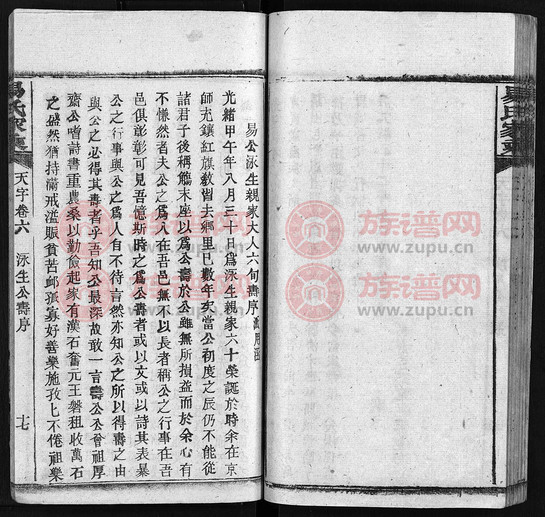 易公泳生親家大人六旬壽序
光緒甲午年八月三十日為泳生親家六十榮誕於時余在京
師充鑲紅旗教習去鄉里已數年矣當公初度之辰仍不能從
諸君子後稱觴末座以為公壽於公雖無所損益而於余心有
不慊然者夫公之為人在吾邑無不以長者稱公之行事在吾
邑俱彰彰可見吾憶斯時之為公壽者或以文或以詩其表暴
公之行事與公之為人有不待言然亦知公之所以得壽之由
與公之必得其壽者乎吾知公最深故敢一言壽公公曾祖厚
齋公嗜詩書重農桑以勤儉起家有漢石奮元王磐租收萬石
之盛然猶持滿戒溢賑貧苦卹孤寡好善樂施孜孜不倦祖樂
易氏家乘
天字卷六
泳生公壽序
十七
易氏家乘
族谱网
www.zupu.cn
族谱网
www.zupu.cn
族谱网
www.zupu.cn
族谱网
www.zupu.cn